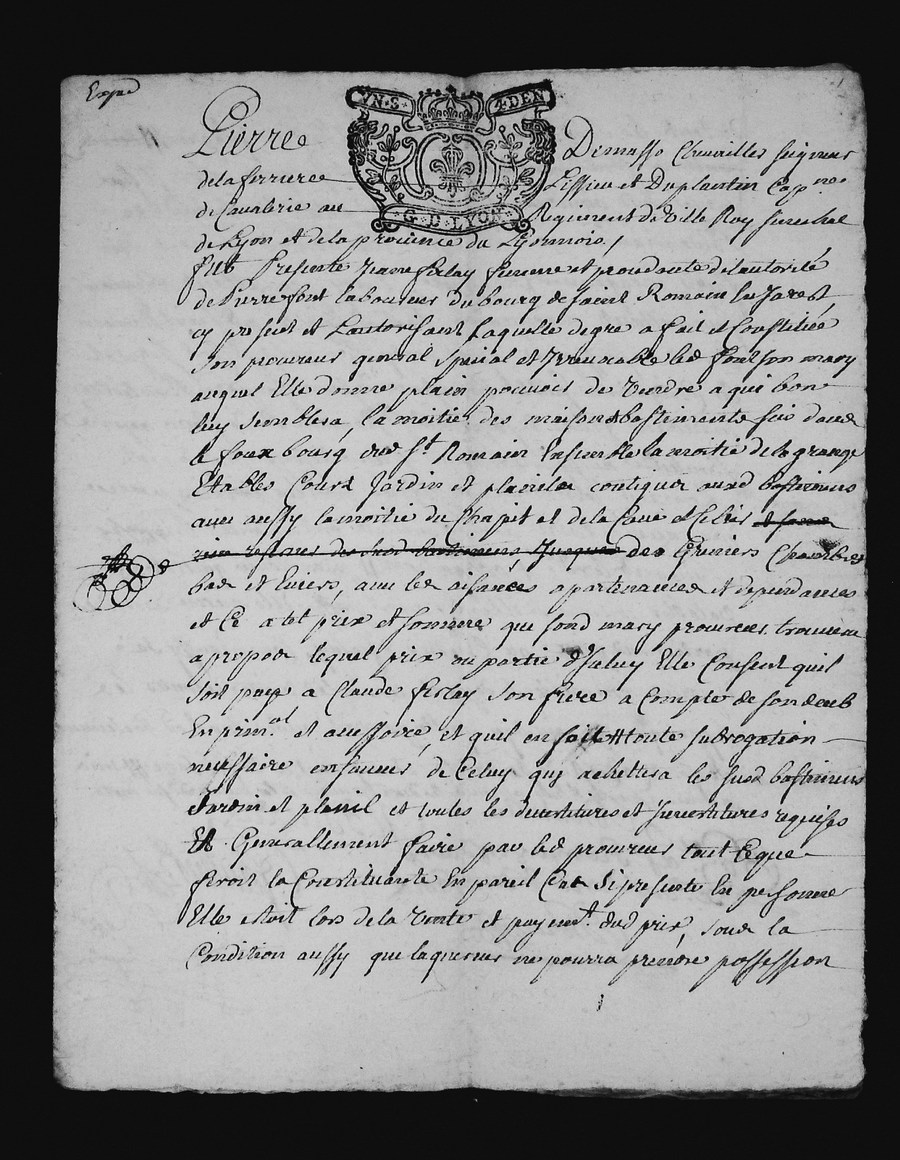 Exped
VN·S· 4·DEN
G·D·LYON
Pierre Demasso Chevallier seigneur
de la ferriere Lissieu et Duplantin Cap.ne
de Cavalerie au Regiment de Ville Roy senechal
de Lyon et de la province du Lyonnois /
fut Presente Jeanne ferlay femme et procedante de lautorité
de Pierre font laboureur du bourg de saint Romain En Jarest
cy present et Lautorisant Laquelle de gre a fait et Constitüe
son procureur general special et Irrevocable led font son mary
auquel Elle donne plain pouvoir de Vendre a qui bon
luy semblera, la moitie des maison & bastiments sis dans
le faux bourg dud St Romain Ensemble la moitie de la grange
Etables Cour Jardin et plassila contigus auxd bastimens
avec aussy la moitie du Chapit et de la Cave et Celier
des Greniers Chambres
bas et Enters, avec les aisances apartenances et dependances
et Ce a tel prix et somme que sond mary procureur trouvera
a propos lequel prix ou partie d'Iceluy Elle Consent quil
soit paye a Claude ferlay son frere a Compte de son deub
En prin.al et accessoire, et quil en soit toute subrogation
necessaire en faveur de Celuy quy achettera les susd bastimens
Jardin et plassil et toutes les devestitures et Investitures requises
Et Generallement faire par led procureur tout Ce que
feroit la Constituante En pareil Cas si presente En personne
Elle estoit lors de la Vente et payem.t dud prix, sous la
Condition aussy que laquereur ne pourra prendre possession